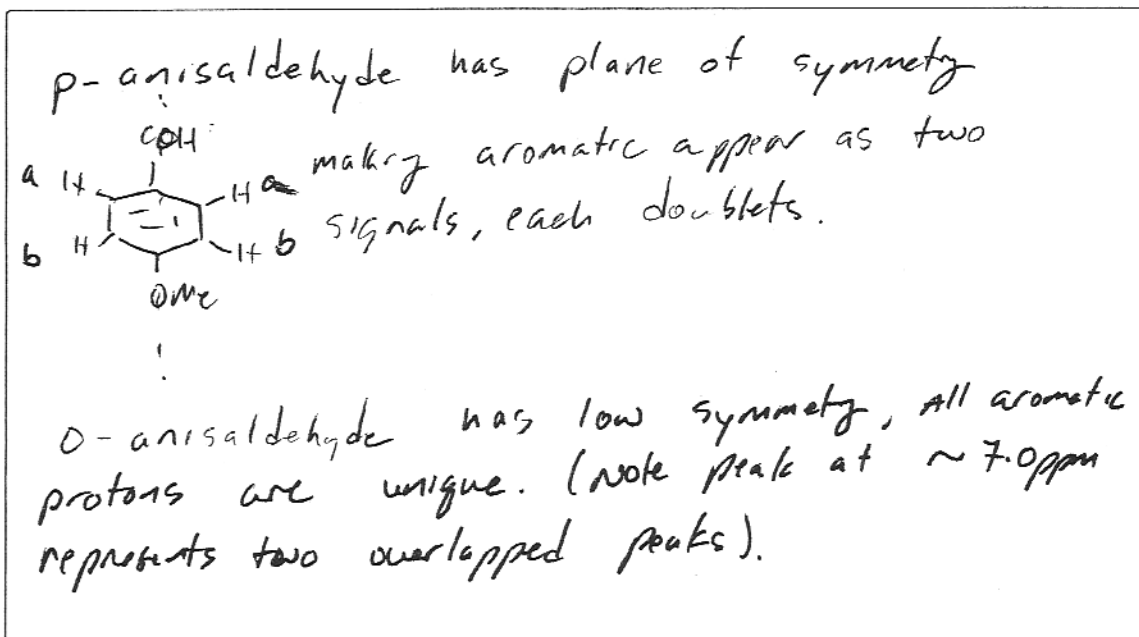 p-anisaldehyde has plane of symmetry
COH
a H H a making aromatic appear as two
b H H b signals, each doublets.
OMe
o-anisaldehyde has low symmetry, All aromatic
protons are unique. (Note peak at ~7.0ppm
represents two overlapped peaks).